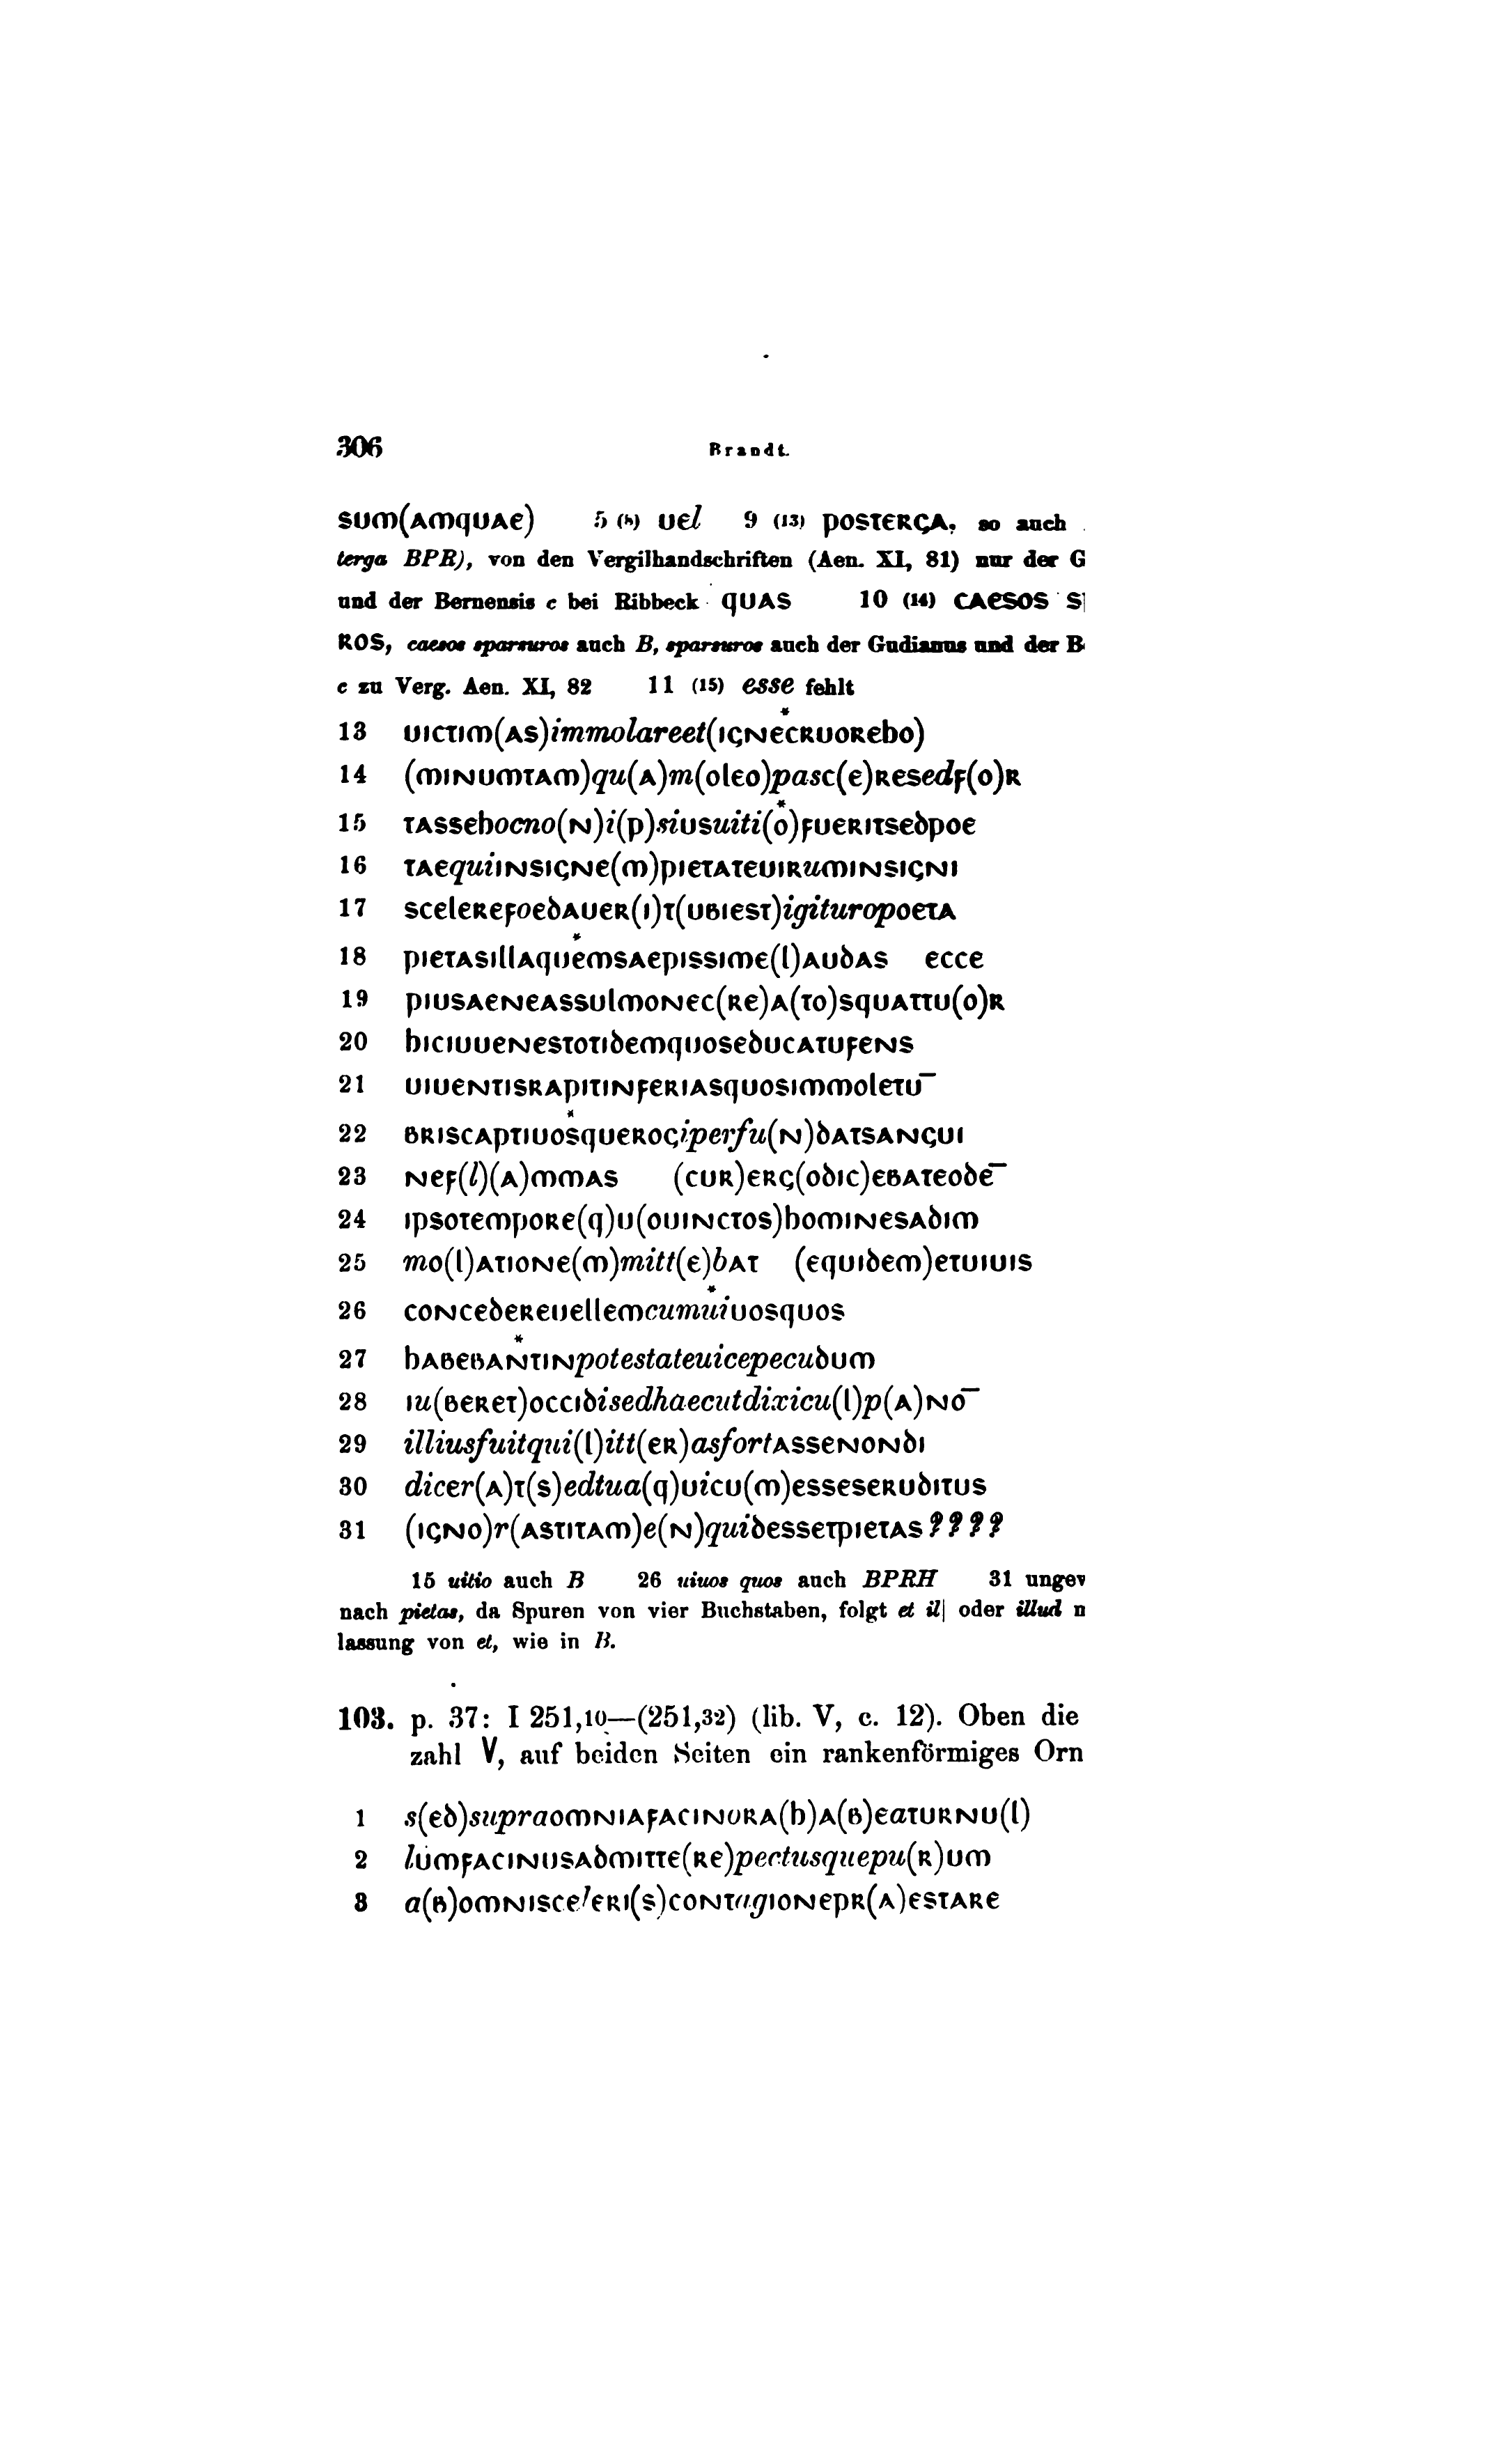 306 Brandt.
SUM(AMQUAE) 5 (8) Uel 9 (13) POSTERGA, so auch
terga BPR), von den Vergilhandschriften (Aen. XI, 81) nur der G
und der Bernensis c bei Ribbeck QUAS 10 (14) CAESOS S
ROS, caesos sparsuros auch B, sparsuros auch der Gudianus und der B
c zu Verg. Aen. XI, 82 11 (15) esse fehlt
13 UICTIM(AS)immolareet(IGNECRUOREhO)
14 (MINUMTAM)qu(A)m(OLEO)pasc(E)RESedF(O)R
15 TASSEhocno(N)i(P)siUSuiti(O)FUERITSEDPOE
16 TAEquiINSIGNE(M)PIETATEUIRuMINSIGNI
17 SCELEREFoEDAUER(I)T(UBIEST)igituropOETA
18 PIETASILLAQUEMSAEPISSIME(L)AUDAS ECCE
19 PIUSAENEASSULMONEC(RE)A(TO)SQUATTU(O)R
20 hICIUUENESTOTIDEMQUOSEDUCATUFENS
21 UIUENTISRAPITINFERIASQUOSIMMOLETU¯
22 BRISCAPTIUOSQUEROGiperfu(N)DATSANGUI
23 NEF(l)(A)MMAS (CUR)ERG(ODIC)EBATEODE¯
24 IPSOTEMPORE(Q)U(OUINCTOS)hOMINESADIM
25 mO(L)ATIONE(M)mitt(E)bAT (EQUIDEM)ETUIUIS
26 CONCEDEREUELLEMcumuiUOSQUOS
27 hABEBANTINpotestateuicepecuDUM
28 Iu(BERET)OCCIDisedhaecutdixicu(L)p(A)NO¯
29 illiusfuitqui(L)itt(ER)asfortASSENONDI
30 dicer(A)T(S)edtua(Q)UiCU(M)ESSESERUDITUS
31 (IGNO)r(ASTITAM)e(N)quiDESSETPIETAS????
15 uitio auch B 26 uiuos quos auch BPRH 31 ungew
nach pietas, da Spuren von vier Buchstaben, folgt et il| oder illud n
lassung von et, wie in B.
103. p. 37: I 251,10—(251,32) (lib. V, c. 12). Oben die
zahl V, auf beiden Seiten ein rankenförmiges Orn
1 s(ED)supraOMNIAFACINORA(h)A(B)EaTURNU(L)
2 lUMFACINUSADMITTE(RE)pectusquepu(R)UM
3 a(B)OMNISCElERI(S)CONTagIONEPR(A)ESTARE